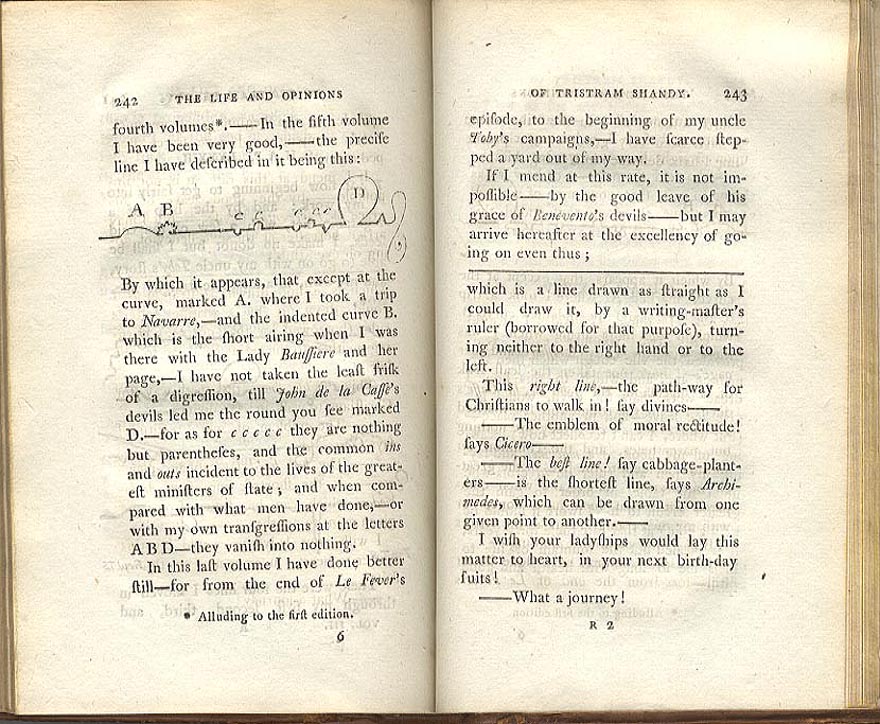 242 THE LIFE AND OPINIONS
fourth volumes*.——In the fifth volume
I have been very good,——the preciſe
line I have deſcribed in it being this:
A B c c c c c D
By which it appears, that except at the
curve, marked A. where I took a trip
to Navarre,—and the indented curve B.
which is the ſhort airing when I was
there with the Lady Bauſſiere and her
page,—I have not taken the leaſt friſk
of a digreſſion, till John de la Caſſe's
devils led me the round you ſee marked
D.—for as for c c c c c they are nothing
but parentheſes, and the common ins
and outs incident to the lives of the great-
eſt miniſters of ſtate; and when com-
pared with what men have done,—or
with my own tranſgreſſions at the letters
A B D—they vaniſh into nothing.
In this laſt volume I have done better
ſtill—for from the end of Le Fever's
* Alluding to the firſt edition.
6
OF TRISTRAM SHANDY. 243
epiſode, to the beginning of my uncle
Toby's campaigns,—I have ſcarce ſtep-
ped a yard out of my way.
If I mend at this rate, it is not im-
poſſible——by the good leave of his
grace of Benevento's devils——but I may
arrive hereafter at the excellency of go-
ing on even thus;
which is a line drawn as ſtraight as I
could draw it, by a writing-maſter's
ruler (borrowed for that purpoſe), turn-
ing neither to the right hand or to the
left.
This right line,—the path-way for
Chriſtians to walk in! ſay divines——
——The emblem of moral rectitude!
ſays Cicero——
——The beſt line! ſay cabbage-plant-
ers——is the ſhorteſt line, ſays Archi-
medes, which can be drawn from one
given point to another.——
I wiſh your ladyſhips would lay this
matter to heart, in your next birth-day
ſuits!
——What a journey!
R 2